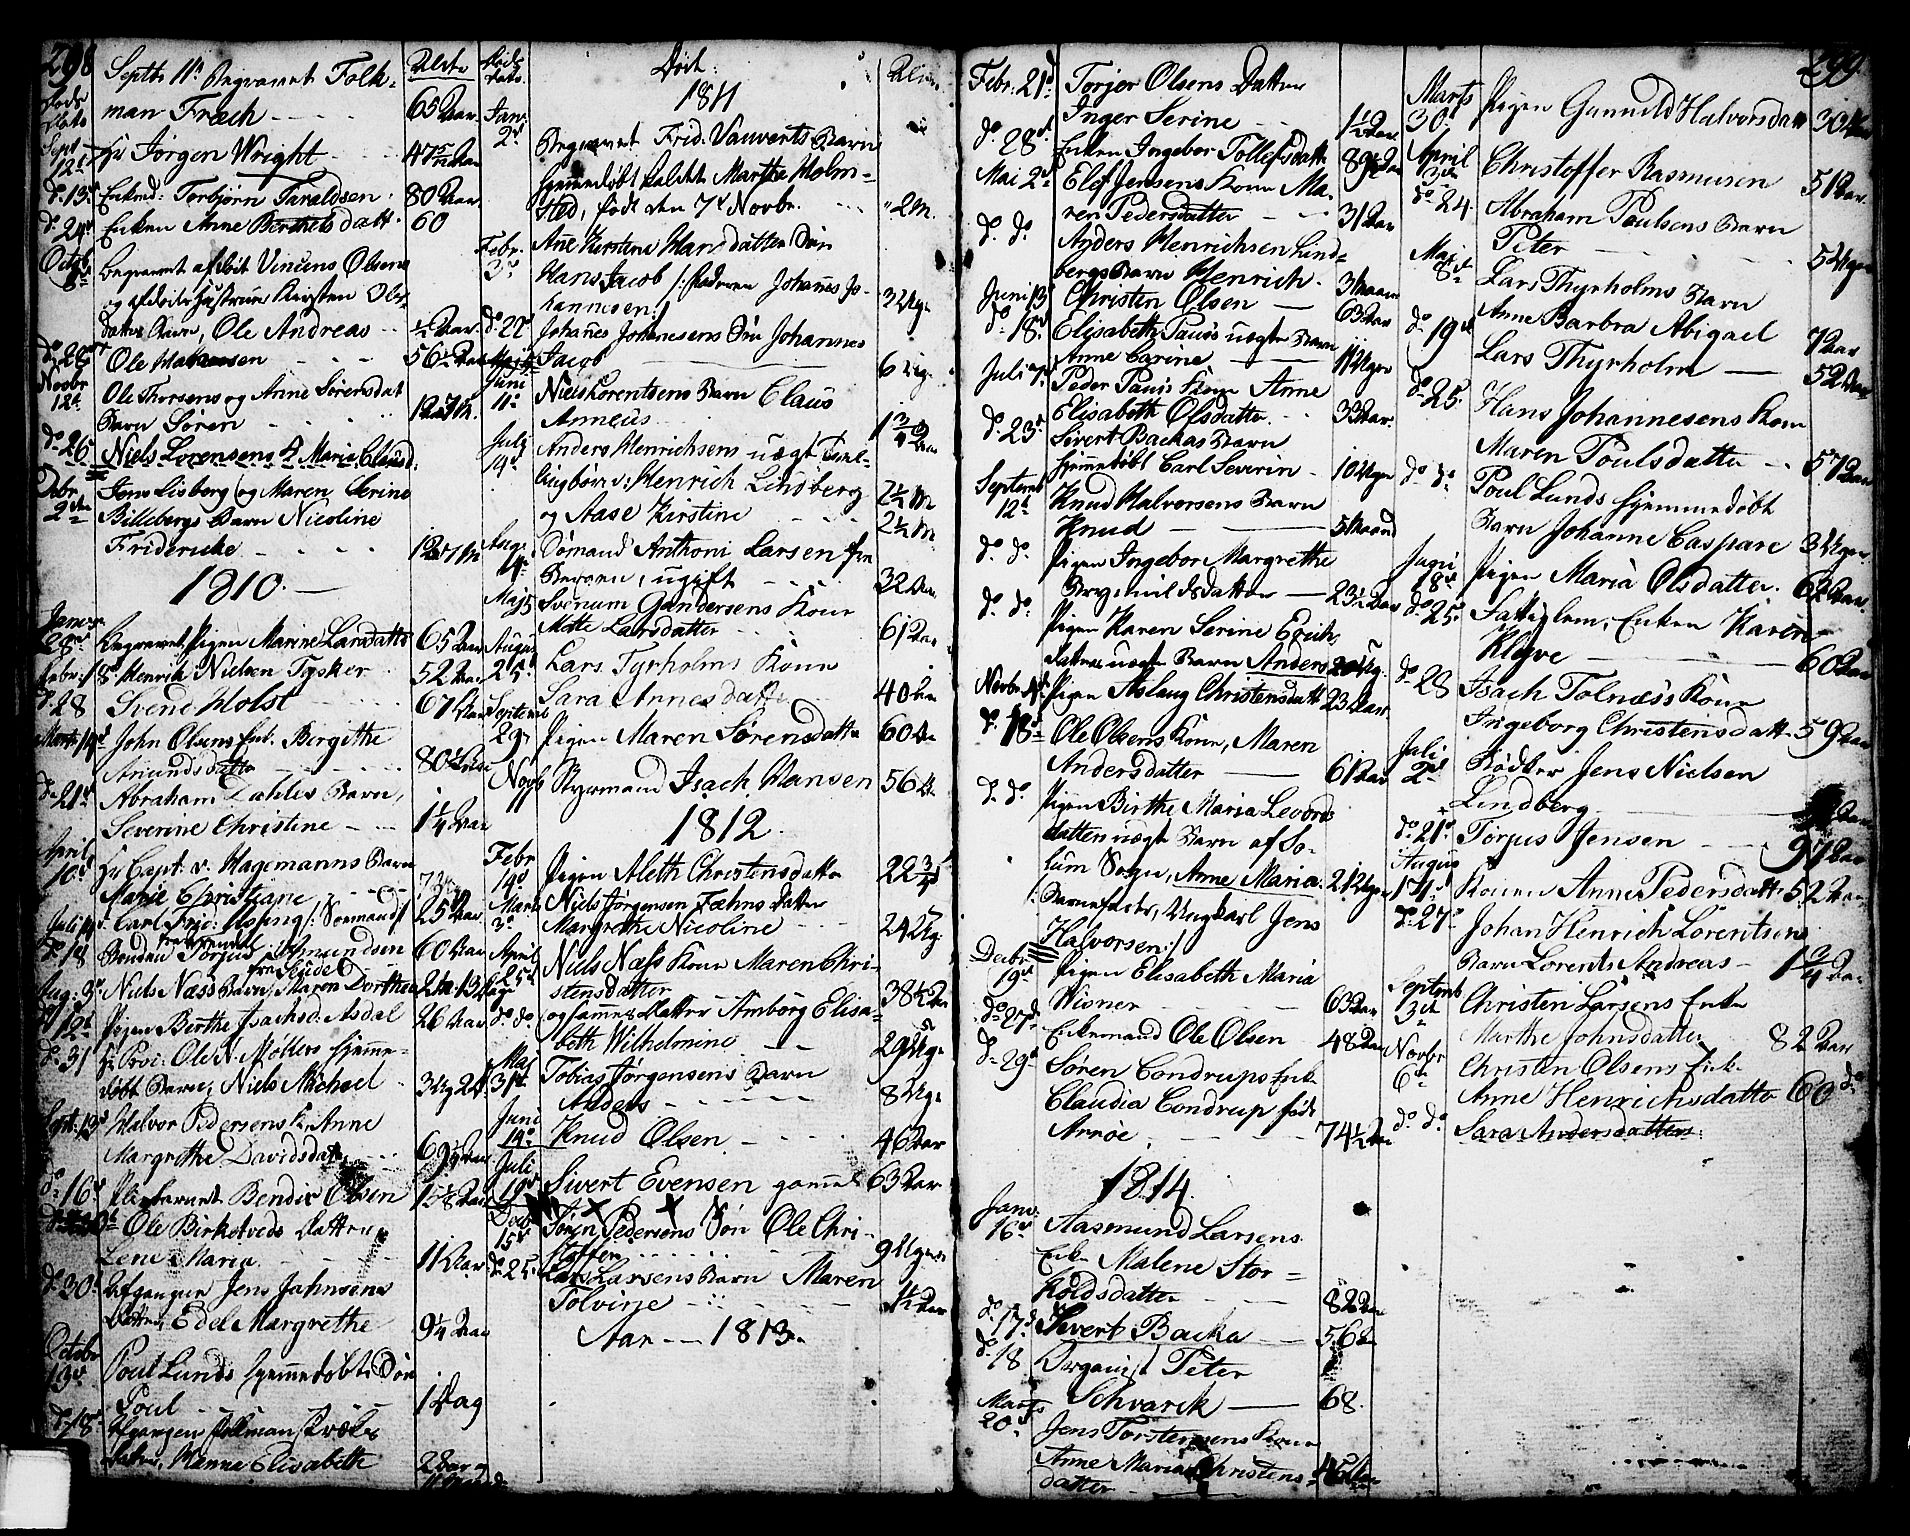 298
Septbr 11te Begravet Folk-
man Fræch 65 Aar
Sept 12te Hr Jørgen Wright 47 5/12 Aar
do 13de Enkmd: Torbjørn Taraldsen 80 Aar
do 24de Enken Anne Berthelsdatt 60
Octob 8de Begravet afdøde Vincens Olsens
og afdøde Hustrue Kirsten Ols-
datters Barn, Ole Andreas 1/2 Aar
do 28de Ole Hansen 56 1/2 Aar
Novbr 12te Ole Thorsens og Anne Sørensdat
Barn Søren
do 26 Niels Lorensens K. Maria Clausd:
Decbr 2den Jens Lisborg og Maren Serine
Billebergs Barn Nicoline
Friderike 1 Aar 7 M
1810
Janv 28de Begravet Pigen Marine Larsdatter 65 Aar
Febr: 18 Henrich Nielsen Tysker 52 Aar
do 28 Svend Holst 67 Aar
Marts 14d John Olsens Enk. Bergithe
Amundsdatter 80 1/2 Aar
do 21de Abraham Dahls Barn,
Severine Christine 1 1/4 Aar
April 10de Hr Capt. v. Hagemanns Barn
Marie Christiane
Juli 14 Carl Frid: Homing /: Sømand :/ 25 Aar
do 18 Bonden Torjus Amundsen 60 Aar
Aug: 3de Niels Næss Barn, Maren Dorthea
do 12te Pigen Berthe Isachsd. Asdal 26 Aar
do 31 Hr Proc: Ole N. Møllers hjemme-
døbt Barn, Niels Michael 3 Ug 2 d
Sept: 13de Halvor Pedersens K. Anne
Margrethe Davidsdat, 69 1/2 Aar
do 16de Pleiebarnet Bendix Olsen 15 1/8 Aar
Ole Birketveds Datter
Lene Maria 11 Aar
do 30te Afgangne Jens Jahnsens
Datter, Edel Margrethe 9 1/4 Aar
Octobr 13de Poul Lunds hjemmedøbte Søn
Poul 1 Dag
do 18de Afgangen Pellman Kræbs
Datter, Hanna Elisabeth 2 Aar og
Døde:
1811
Janv 2de Begravet Frid. Vauverts Barn
hjemmedøbt kaldet Marthe Holm-
sted, født den 7de Novbr. 2 M.
Febr. 3de Ane Kirstena Hansdatters Søn
Hans Jacob /: Faderen Johannes Jo-
hannesen :/ 3 Uger
do 22de Johanes Johanesens Søn Johannes
Jacob 6 Uger
Juni 11te Niels Lorentsens Barn Claus
Anneus 1 3/4 Aar
Juli 14d Anders Henrichsens uægt Tvil-
lingbørn: Henrich Lindberg 2 1/2 M
og Aase Kirstine 2 1/2 M.
Aug: 4de Sømand Anthoni Larsen fra
Bergen, ugift 32 Aar
Maj 5 Svenum Gundersens Kone
Mette Larsdatter 61 Aar
August 25de Lars Tyrholms Kone
Sara Annesdatter 40 Aar
Septemb 29de Pigen Maren Sørensdatter 60 Aar
Novbr Styrmand Isach Hansen 56 Aar
1812
Febr 19de Pigen Aleth Christensdatter 22 3/4
Marts 3de Niels Jørgensen Fæhns Datter
Margrethe Nicoline 24 Ug
April 25de Niels Næss Kone Maren Chri-
stensdatter 38 1/2 Aar
do do og sammes Datter Amborg Elisa-
beth Wilhelmine 29 Uger
Maj 31te Tobias Jørgensens Barn
Anders 8 Uger
Juni 14de Knud Olsen 46 Aar
Juli 19de Sivert Evensen gammel 63 Aar
Decb 15de Søren Pedersens Søn Ole Chri-
stoffer 9 Uger
do 25de Lars Larsens Barn Maren
Tolvine 1 1/2 Aar
Aar — 1813.
Febr: 21de Torjer Olsens Datter
Inger Serine 1 1/2 Aar
do 28de Enken Ingebor Tollefsdatter 89 1/2 Aar
Mai 2de Elef Jensens Kone Ma-
ren Pedersdatter 31 Aar
do do Anders Henrichsen Lind-
bergs Barn Henrich. 3 Maaneder
Juni 13 Christen Olsen 63 Aar
do 18de Elisabeth Pauss uægte Barn
Anne Carine 11 Uger
Juli 7de Peder Pauss Kone Anne
Elisabeth Olsdatter 33 Aar
do 23de Sivert Backas Barn
hjemmedøbt Carl Severin 10 Uger
Septemb 12te Knud Halvorsens Barn
Knud 5 Maaned
do do Pigen Ingebor Margrethe
Brynildsdatter 23 1/2 Aar
do do Pigen Karen Serine Erich-
datters uægte Barn Anders
Novbr 4de Pigen Aslaug Christensdatt 23 Aar
do 18de Ole Olsens Kone, Maren
Andersdatter 61 Aar
do do Pigen Birthe Maria Levords
datters uægte Barn af So-
lum Sogn, Anne Maria. 21 Uger
/: Barnefader, Ungkarl Jens
Halvorsen :/
Decbr 19de Pigen Elisabeth Maria
Wisner 63 Aar
do 27de Enkemand Ole Olsen 48 Aar
do 29de Søren Condrups Enke
Claudia Condrup født
Arnøe 74 1/2 Aar
1814
Janv. 16de Aasmund Larsens
Enke Malene Stor-
holdsdatter 82 Aar
do 17de Sivert Backa 56 Aar
do 18 Organist Peter
Schvarck 68
Marts 20de Jens Torstensens Kone
Anne Maria Christens-
datter
299
Marts 30te Pigen Gunnild Halvorsdatt 30 Aar
April 3de Christoffer Rasmusen 51 Aar
do 24. Abraham Poulsens Barn
Peter 5 Uger
Mai 8de Lars Thyrholms Barn
Anne Barbra Abigael 7 Aar
do 19de Lars Thyrholm 52 Aar
do 25 Hans Johannesens Kone
Maren Poulsdatter 57 Aar
do do Poul Lunds hjemmedøbt
Barn Johanne Caspare 3 Uger
Juni 18de Pigen Maria Olsdatter. 62 Aar
do 25de Fattiglem, Enken Karen
Kleve 60 Aar
do 28 Isach Tolnæs's Kone
Ingeborg Christensdatt 59 Aar
Juli 2de Bødker Jens Nielsen
Lindberg
do 21de Torjus Jensen 97 Aar
August 14de Konen Anne Pedersdatt 52 Aar
do 27de Johan Henrich Lorentsens
Barn Lorents Andreas 1 3/4 Aar
Septemb 3de Christen Larsens Enke
Marthe Johnsdatter 82 Aar
Novbr 6te Christen Olsens Enke
Anne Henrichsdatter 60 do
do do Sara Andersdatters